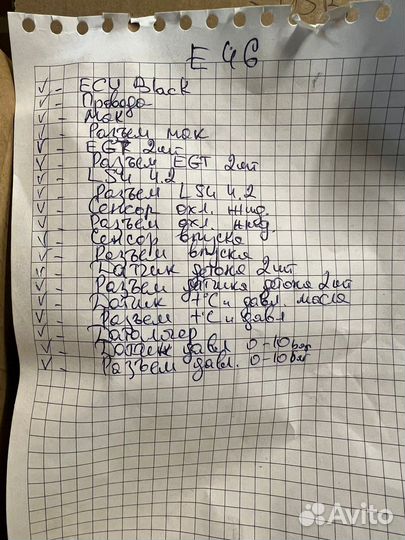 E 46
✓ - ECU Black
✓ - Провода
✓ - мак
✓ - Разъем мак
✓ - EGT 2шт
✓ - Разъем EGT 2шт
✓ - LSU 4.2
✓ - Разъем LSU 4.2
✓ - Сенсор охл. жид.
✓ - Разъем охл. жид.
✓ - Сенсор впуска
✓ - Разъем впуска
✓ - Датчик детона 2шт
✓ - Разъем датчика детона 2шт
✓ - Датчик t°C и давл. масла
✓ - Разъем t°C и давл
✓ - Даталогер
✓ - Датчик давл 0-10 bar
✓ - Разъем давл. 0-10 bar
Avito